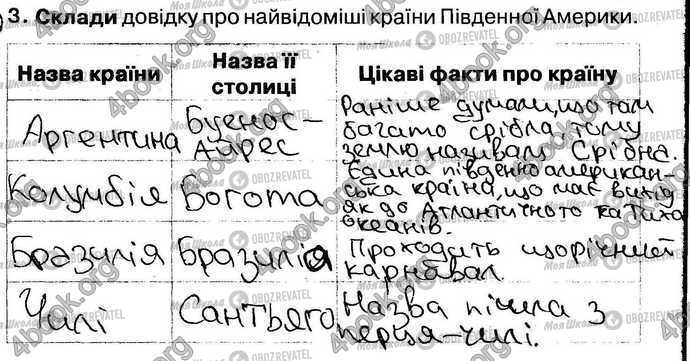 3. Склади довідку про найвідоміші країни Південної Америки.
Назва країни
Назва її
столиці
Цікаві факти про країну
Аргентина
Буенос-
Айрес
Раніше думали, що там
багато срібла, тому
землю називали Срібна.
Колумбія
Богота
Єдина південноамерикан-
ська країна, що має вихід
як до Атлантичного та Тихо
океанів.
Бразилія
Бразиліа
Проходить щорічний
карнавал.
Чилі
Сантьяго
Назва пішла з
перця-чилі.
4book.org
Моя Школа
OBOZREVATEL